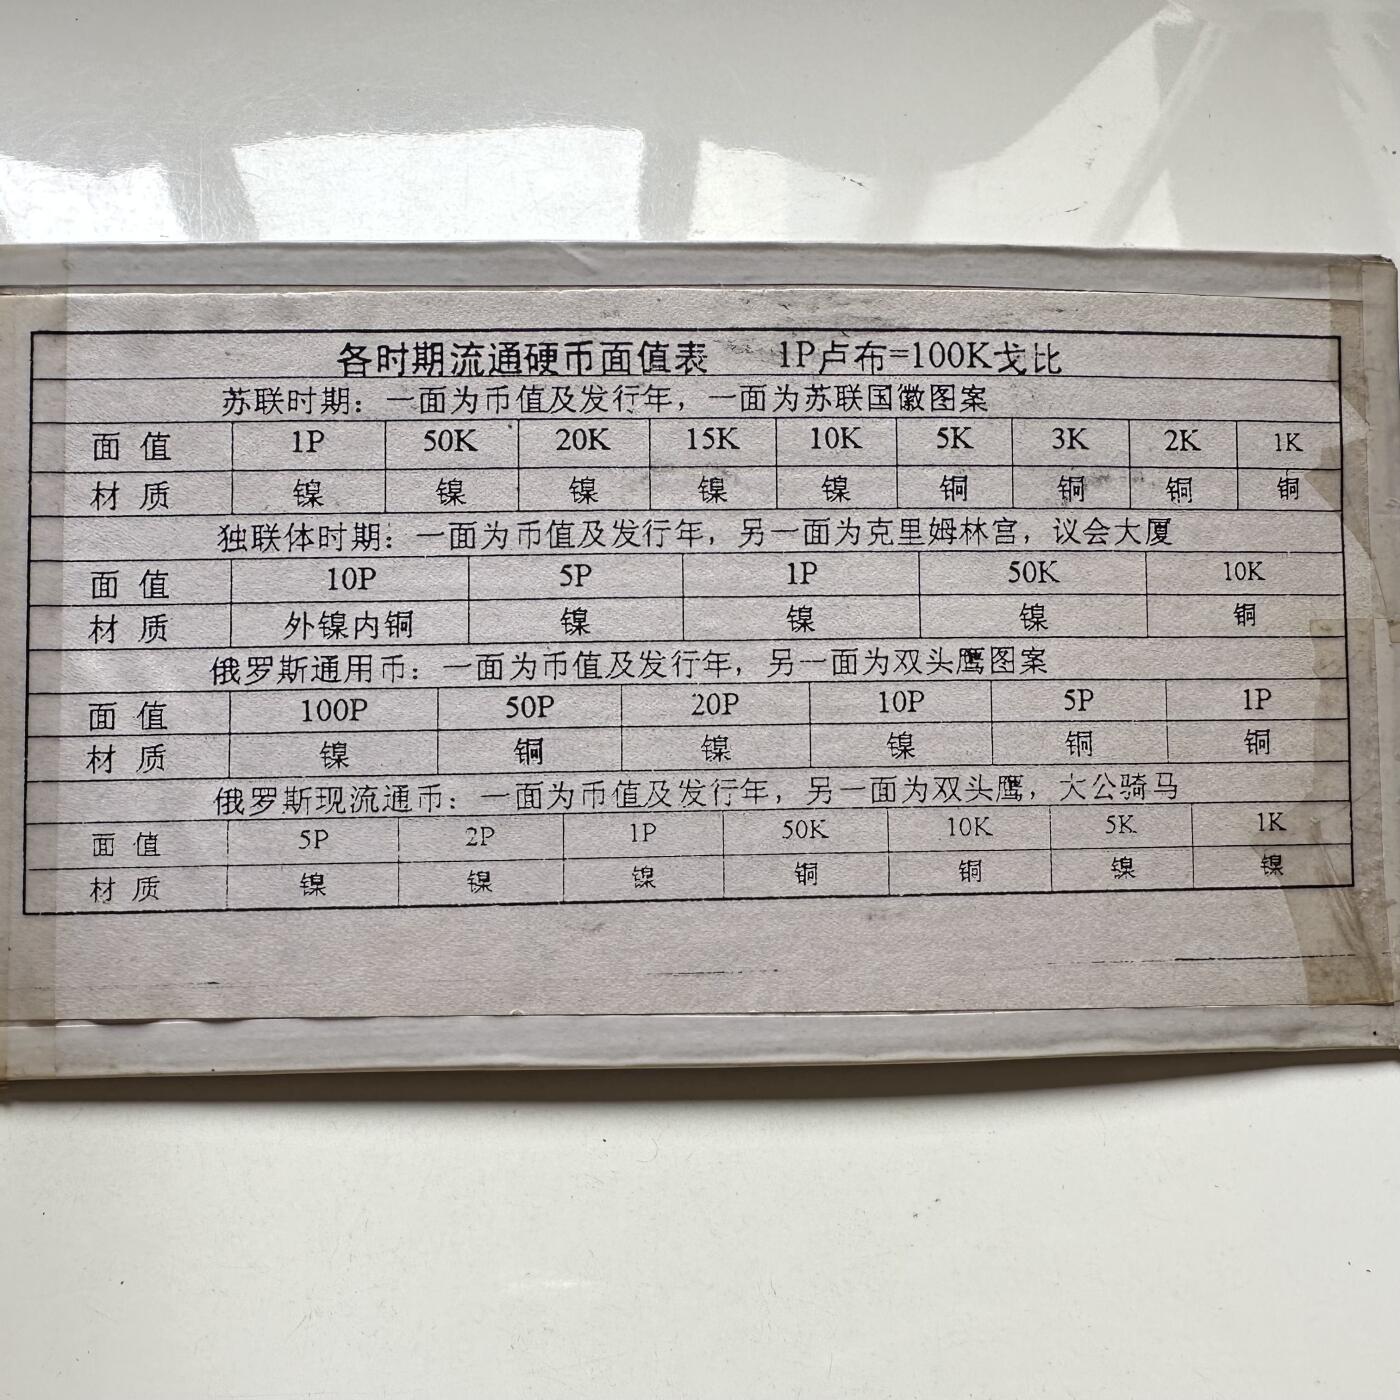 各时期流通硬币面值表 1P卢布=100K戈比
苏联时期：一面为币值及发行年，一面为苏联国徽图案
面值 1P 50K 20K 15K 10K 5K 3K 2K 1K
材质 镍 镍 镍 镍 镍 铜 铜 铜 铜
独联体时期：一面为币值及发行年，另一面为克里姆林宫，议会大厦
面值 10P 5P 1P 50K 10K
材质 外镍内铜 镍 镍 镍 铜
俄罗斯通用币：一面为币值及发行年，另一面为双头鹰图案
面值 100P 50P 20P 10P 5P 1P
材质 镍 铜 镍 镍 铜 铜
俄罗斯现流通币：一面为币值及发行年，另一面为双头鹰，大公骑马
面值 5P 2P 1P 50K 10K 5K 1K
材质 镍 镍 镍 铜 铜 镍 镍